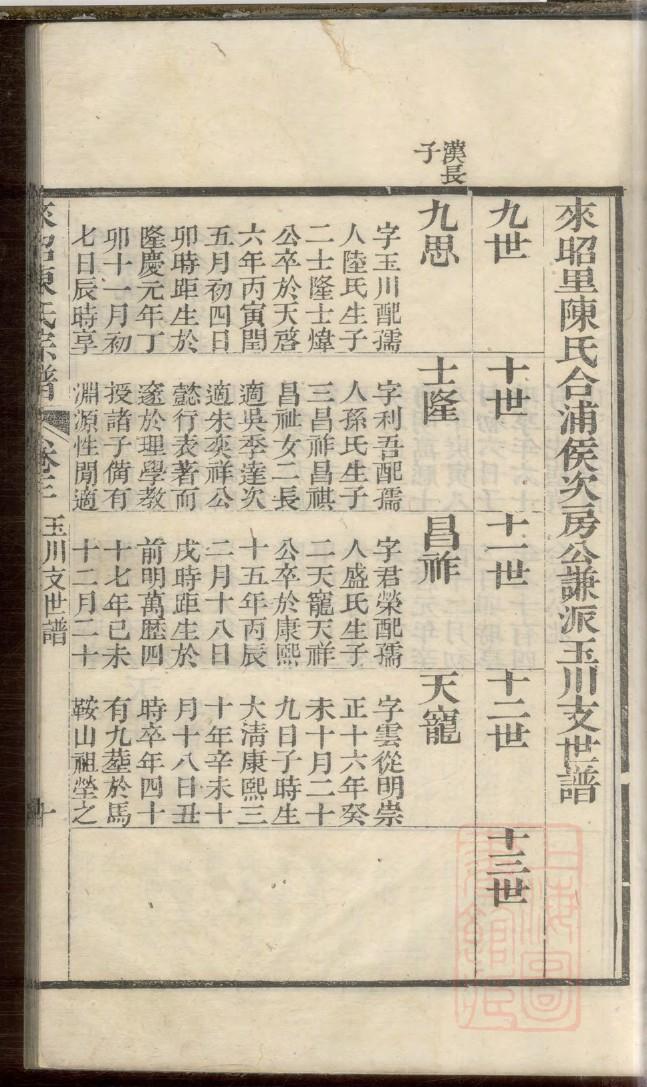 來昭里陳氏合浦侯次房公謙派玉川支世譜
九世
十世
十一世
十二世
十三世
漢長
子
九思
字玉川配孺
人陸氏生子
二士隆士煒
公卒於天啓
六年丙寅閏
五月初四日
卯時距生於
隆慶元年丁
卯十一月初
七日辰時享
士隆
字利吾配孺
人孫氏生子
三昌祚昌祺
昌祉女二長
適吳季達次
適朱奕祥公
懿行表著而
邃於理學教
授諸子備有
淵源性閒適
昌祚
字君榮配孺
人盛氏生子
二天寵天祥
公卒於康熙
十五年丙辰
二月十八日
戌時距生於
前明萬歷四
十七年己未
十二月二十
天寵
字雲從明崇
正十六年癸
未十月二十
九日子時生
大清康熙三
十年辛未十
月十八日丑
時卒年四十
有九塟於馬
鞍山祖塋之
來昭陳氏宗譜
卷三
玉川支世譜
十
上海圖
書館藏